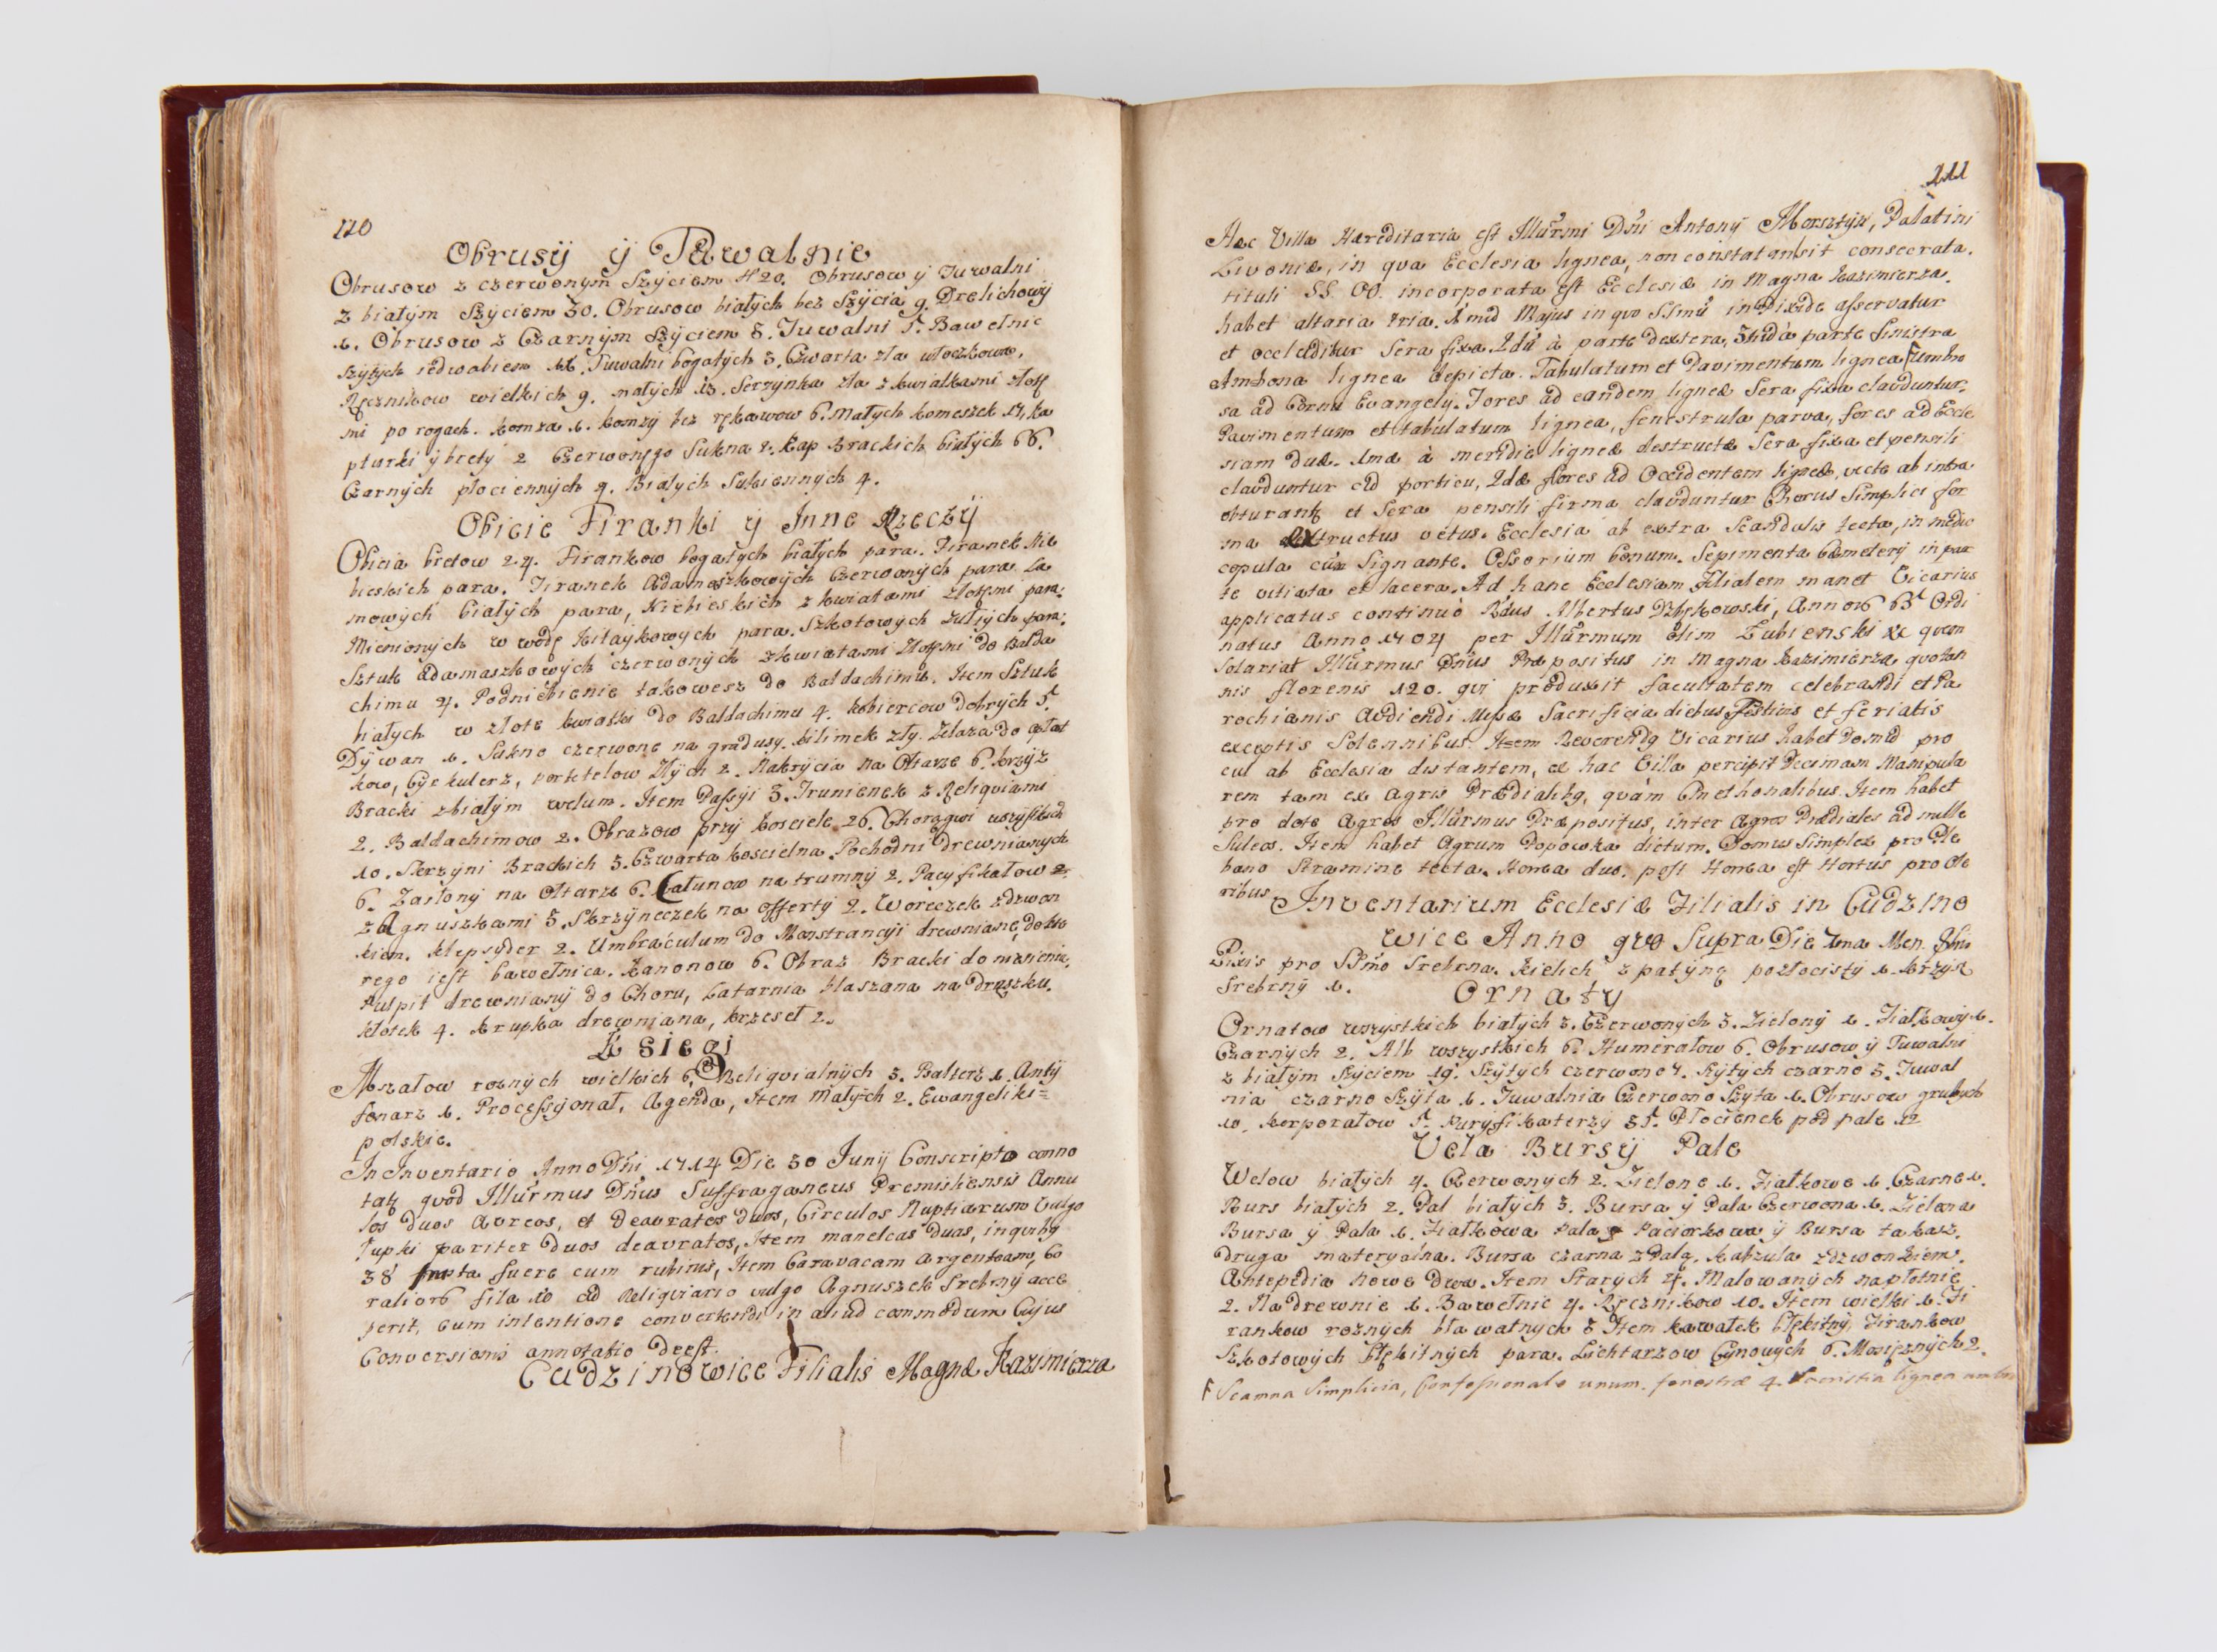 110
Obrusÿ ÿ Tuwalnie
Obrusow z czerwonym Szÿciem N 20. Obrusow ÿ Tuwalni
z białÿm Szÿciem 30. Obrusow białÿch bez Szÿcia 9. Drelichowÿ
1. Obrusow z Czarnÿm Szÿciem 8. Tuwalni 5. Bawełnic
szÿtÿch iedwabiem 11. Tuwalni bogatÿch 3. Czwarta zła włoczkowa.
Ręcznikow wielkich 9. małÿch 13. Serzynka zła z kwiatkami złotÿ
mi po rogach. komza 1. komzÿ bez rękawow 6. Małÿch komeszek 17. ka
pturki ÿ biretÿ 2 Czerwonego Sukna 2. Kap Brackich białÿch 66.
Czarnÿch płociennÿch 4. Białÿch Sukiennÿch 4.
Obicie Firanki ÿ Inne Rzeczÿ
Obicia bretow 24. Firankow bogatÿch białÿch para. Firanek Nie
bieskich para. Firanek Adamaszkowÿch Czerwonÿch para La
mowÿch białÿch para, Niebieskich z kwiatami złotÿmi para.
Mienionÿch w wodę kitaÿkowÿch para. Szkotowÿch żułtÿch para.
Sztuk adamaszkowÿch czerwonÿch z kwiatami złotÿmi do Balda
chimu 4. Podniebienie takowesz do Baldachimu. Item Sztuk
białÿch w złote kwiatki do Baldachimu 4. kobiercow dobrÿch 5.
Dÿwan 1. Sukno czerwone na gradusÿ. kilimek złÿ. Żelaza do opłat
kow, Cÿrkulerz, portetelow złÿch 2. Nakrÿcia na Ołtarze 6. krzÿż
Bracki z białÿm welum. Item Passÿi 3. Trunienek z Reliquiami
2. Baldachimow 2. Obrazow przÿ kosciele 26. Chorągwi wszÿstkich
10. Skrzÿni Brackich 3. Czwarta koscielna. Pochodni drewnianÿch
6. Zasłonÿ na Ołtarze 6. Całunow na trumnÿ 2. Pacÿfikałow 2.
z Agnuszkami 3. Skrzÿneczek na offertÿ 2. Woreczek z dzwon
kiem. klepsÿder 2. Umbraculum do Monstrancÿi drewniane, do kto
rego iest bawełnica. Kanonow 6. Obraz Bracki do noszenia.
Pulpit drewnianÿ do Choru, Latarnia blaszana na Drążku.
kłotek 4. krupka drewniana, krzeseł 2.
Księgi
Mszałow roznÿch wielkich 6. Reliquialnÿch 3. Psałterz 1. Antÿ
fonarz 1. Processÿonał, Agenda, Item małÿch 2. Ewangeliki=
polskie.
In Inventario Anno Dñi 1714 Die 30 Junij Conscripto conno
tatq quod Illũrmus Dñus Suffraganeus Premisliensis Annu
los duos Aureos, et deauratos duos, Circulos Nuptiarum vulgo
Szupki pariter duos deauratos, Item manelcas duas, in quibq
38 fuere cum rubinis, Item Caravacam Argenteam, Co
raliorũ fila 10 ad Reliquiario vulgo Agnuszek Srebrnÿ acce
perit, cum intentione convertendi in aliud commodum Cujus
Conversionis annotatio deest.
Cudzinowice Filialis Magnæ Kazimierza
111
Hæc Villa Hæreditaria est Illũrmi Dñi Antonÿ Morsztÿn, Palatini
Livoniæ, in qva Ecclesia lignea, non constat an sit consecrata.
tituli SS. OO. incorporata est Ecclesiæ in Magna Kazimierza.
habet altaria tria. 1mũ Majus in quo SSmũ in Pixide asservatur
et occluditur Sera fixa. 2dũ à parte dextera, 3tiũ à parte Sinistra
Ambona lignea depicta. Tabulatum et Pavimentum lignea
sa ad Cornu Evangelÿ. Fores ad eandem ligneæ Sera fixa clauduntur.
Pavimentum et tabulatum lignea, fenestrula parva, fores ad Eccle
siam duæ. 1mæ à meridie ligneæ destructæ Sera fixa et pensili
clauduntur cũ porticu, 2dæ fores ad Occidentem ligneæ, vecte ab intra
obturantq et Sera pensili firma clauduntur Chorus Simplici for
ma extructus vetus. Ecclesia ab extra Scandulis tecta, in medio
copula cũ Signante. Ossorium bonum. Sepimenta Cæmeterÿ in par
te vitiata et lacera. Ad hanc Ecclesiam Filialem manet Vicarius
applicatus continuò Rđus Albertus Dąbkowski, Annorũ 65 Ordi
natus Anno 1704 per Illũrmum olim Łubienski &c quem
Solariat Illũrmus Dñus Præpositus in Magna Kazimierza quotan
nis florenis 120. qui produxit facultatem celebrandi et Pa
rochianis Audiendi Missæ Sacrificia diebus Festivis et feriatis
exceptis Solennibus. Item Reverendq Vicarius habet Domũ pro
cul ab Ecclesia distantem, ex hac Villa percipit Decimam Manipula
rem tam ex Agris Prædialibq, quàm Cmethonalibus. Item habet
pro dote Agros Illũrmus Præpositus, inter Agros Prædiales ad mille
Sulcos. Item habet Agrum Popowka dictum. Domus Simplex pro Ple
bano Stramine tecta. Horrea duo. post Horrea est Hortus pro Ole
ribus
Inventarium Ecclesiæ Filialis in Cudzino
wice Anno quo Supra Die 7ma Men. 8bris
Pixis pro SSmo Srebrna. Kielich z patÿną pozłocistÿ 1. krzÿż
Srebrnÿ 1.
Ornatÿ
Ornatow wszystkich białÿch 3. Czerwonÿch 3. Zielonÿ 1. Fiałkowÿ 1.
Czarnÿch 2. Alb wszystkich 6. Humirałow 6. Obrusow ÿ Tuwalni
z białÿm Szÿciem 19. Szÿtÿch czerwono 7. szÿtÿch czarno 3. Tuwal
nia czarno Szÿta 1. Tuwalnia Czerwono Szÿta 1. Obrusow grubÿch
10. korporałow 5. Purÿfikaterzÿ 35. Płocienek pod pale 12
Vela Bursÿ Pale
Welow białÿch 4. Czerwonÿch 2. Zielone 1. Fiałkowe 1. Czarne 1.
Burs białÿch 2. Pal białÿch 3. Bursa ÿ Pala Czerwona 1. Zielona
Bursa ÿ Pala 1. Fiałkowa Pala Paciorkowa ÿ Bursa takasz.
druga materyalna. Bursa czarna z Palą. kapzula z dzwonkiem.
Antepedia nowe dwa. Item Starÿch 4. Malowanÿch na płotnie
2. Na drewnie 1. Bawełnic 4. Ręcznikow 10. Item wielki 1. Fi
rankow roznÿch bławatnÿch 3 Item kawałek błękitnÿ, Firankow
Szkotowÿch błękitnÿch para. Lichtarzow Cÿnowÿch 6. Mosięznÿch 2.
F Scamna Simplicia, Confessionale unum. fenestræ 4. Sacristia lignea